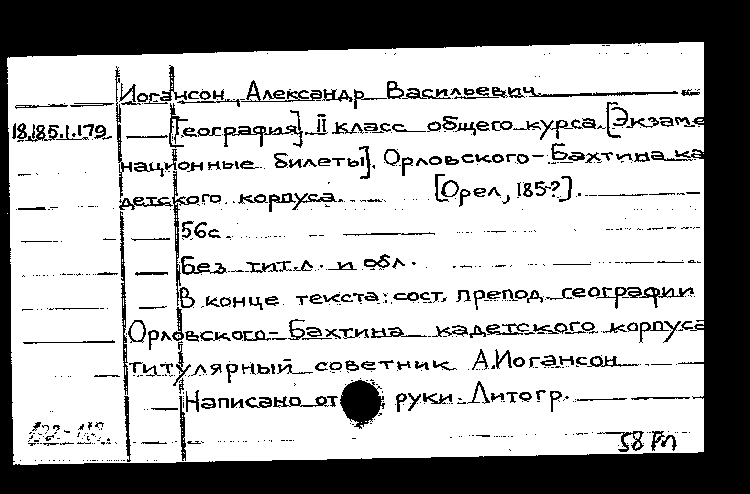 Иогансон, Александр Васильевич
18.185.1.179 [География]. II класс общего курса. [Экзаме
национные билеты]. Орловского-Бахтина ка
детского корпуса. [Орел, 185-?].
56с.
Без тит.л. и обл.
В конце текста: сост. препод. географии
Орловского-Бахтина кадетского корпуса
титулярный советник А.Иогансон
Написано от руки. Литогр.
58